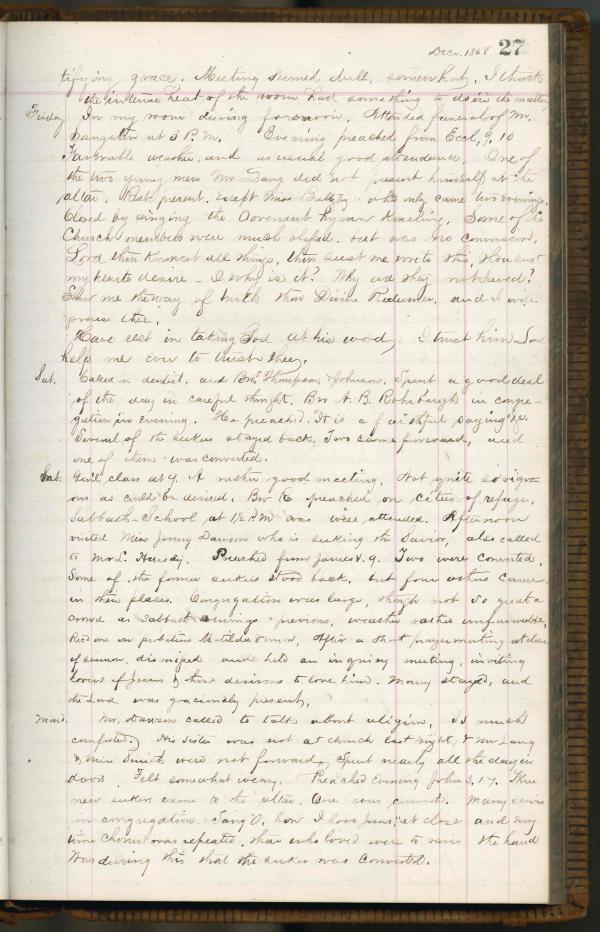 Dec. 1868 27
tifying grace. Meeting seemed dull, somewhat, I think
the intense heat of the room had something to do in the matter
Friday In my room during forenoon. Attended funeral of Mr.
Sangster at 3 P.M. Evening preached from Eccl. 9. 10
Favorable weather, and as usual good attendance. One of
the two young men Mr Lang did not present himself at the
altar. Rest present, except Miss who only came two evenings.
Closed by singing the Covenant hymn kneeling. Some of the
Church members were much blessed, but was no conversion,
Lord thou knowest all things, thou must me write this, thou seest
my hearts desire - O why is it? Why are they not saved?
Show me the way of truth thou Divine Redeemer, and I will
praise thee.
Have rest in taking God at his word, I trust him - Lord
help me ever to trust thee,
Sat. Called on dentist, and Bros Thompson, Johnson. Spent a good deal
of the day in careful thought, Bro A. B. Rohrbaugh in congre-
gation in evening. He preached "It is a faithful saying &c.
Several of the seekers stayed back, Two came forward, and
one of them was converted.
Sab. Genl. class at 9. A rather good meeting, Not quite so vigor-
ous as could be desired. Bro R preached on cities of refuge.
Sabbath-School at 1½ P.M. was well attended. Afternoon
visited Miss Jenny Dawson who is seeking the Savior, also called
to Mr L. Hursey. Preached from James V. 9. Two were converted.
Some of the former seekers stood back, but four others came
in their places. Congregation was large, though not so great a
crowd as Sabbath evenings previous, weather rather unfavorable,
Rec'd one on probation Matilda After a short prayer meeting at close
of sermon, dismissed and held an inquiry meeting, inviting
lovers of Jesus & those desirous to love him. Many stayed, and
the Lord was graciously present,
Mond. Mr. Dawson called to talk about religion, is much
comforted, His sister was not at church last night, & Mr Lang
& Miss Smith were not forward, Spent nearly all the day in
doors. Felt somewhat weary. Preached Evening John 3. 17. Three
new seekers came to the altar. One was converted. Many serious
in congregation. Sang "O, how I love Jesus", at close and every
time chorus was repeated, those who loved were to raise the hand
Was during this that the seeker was converted.